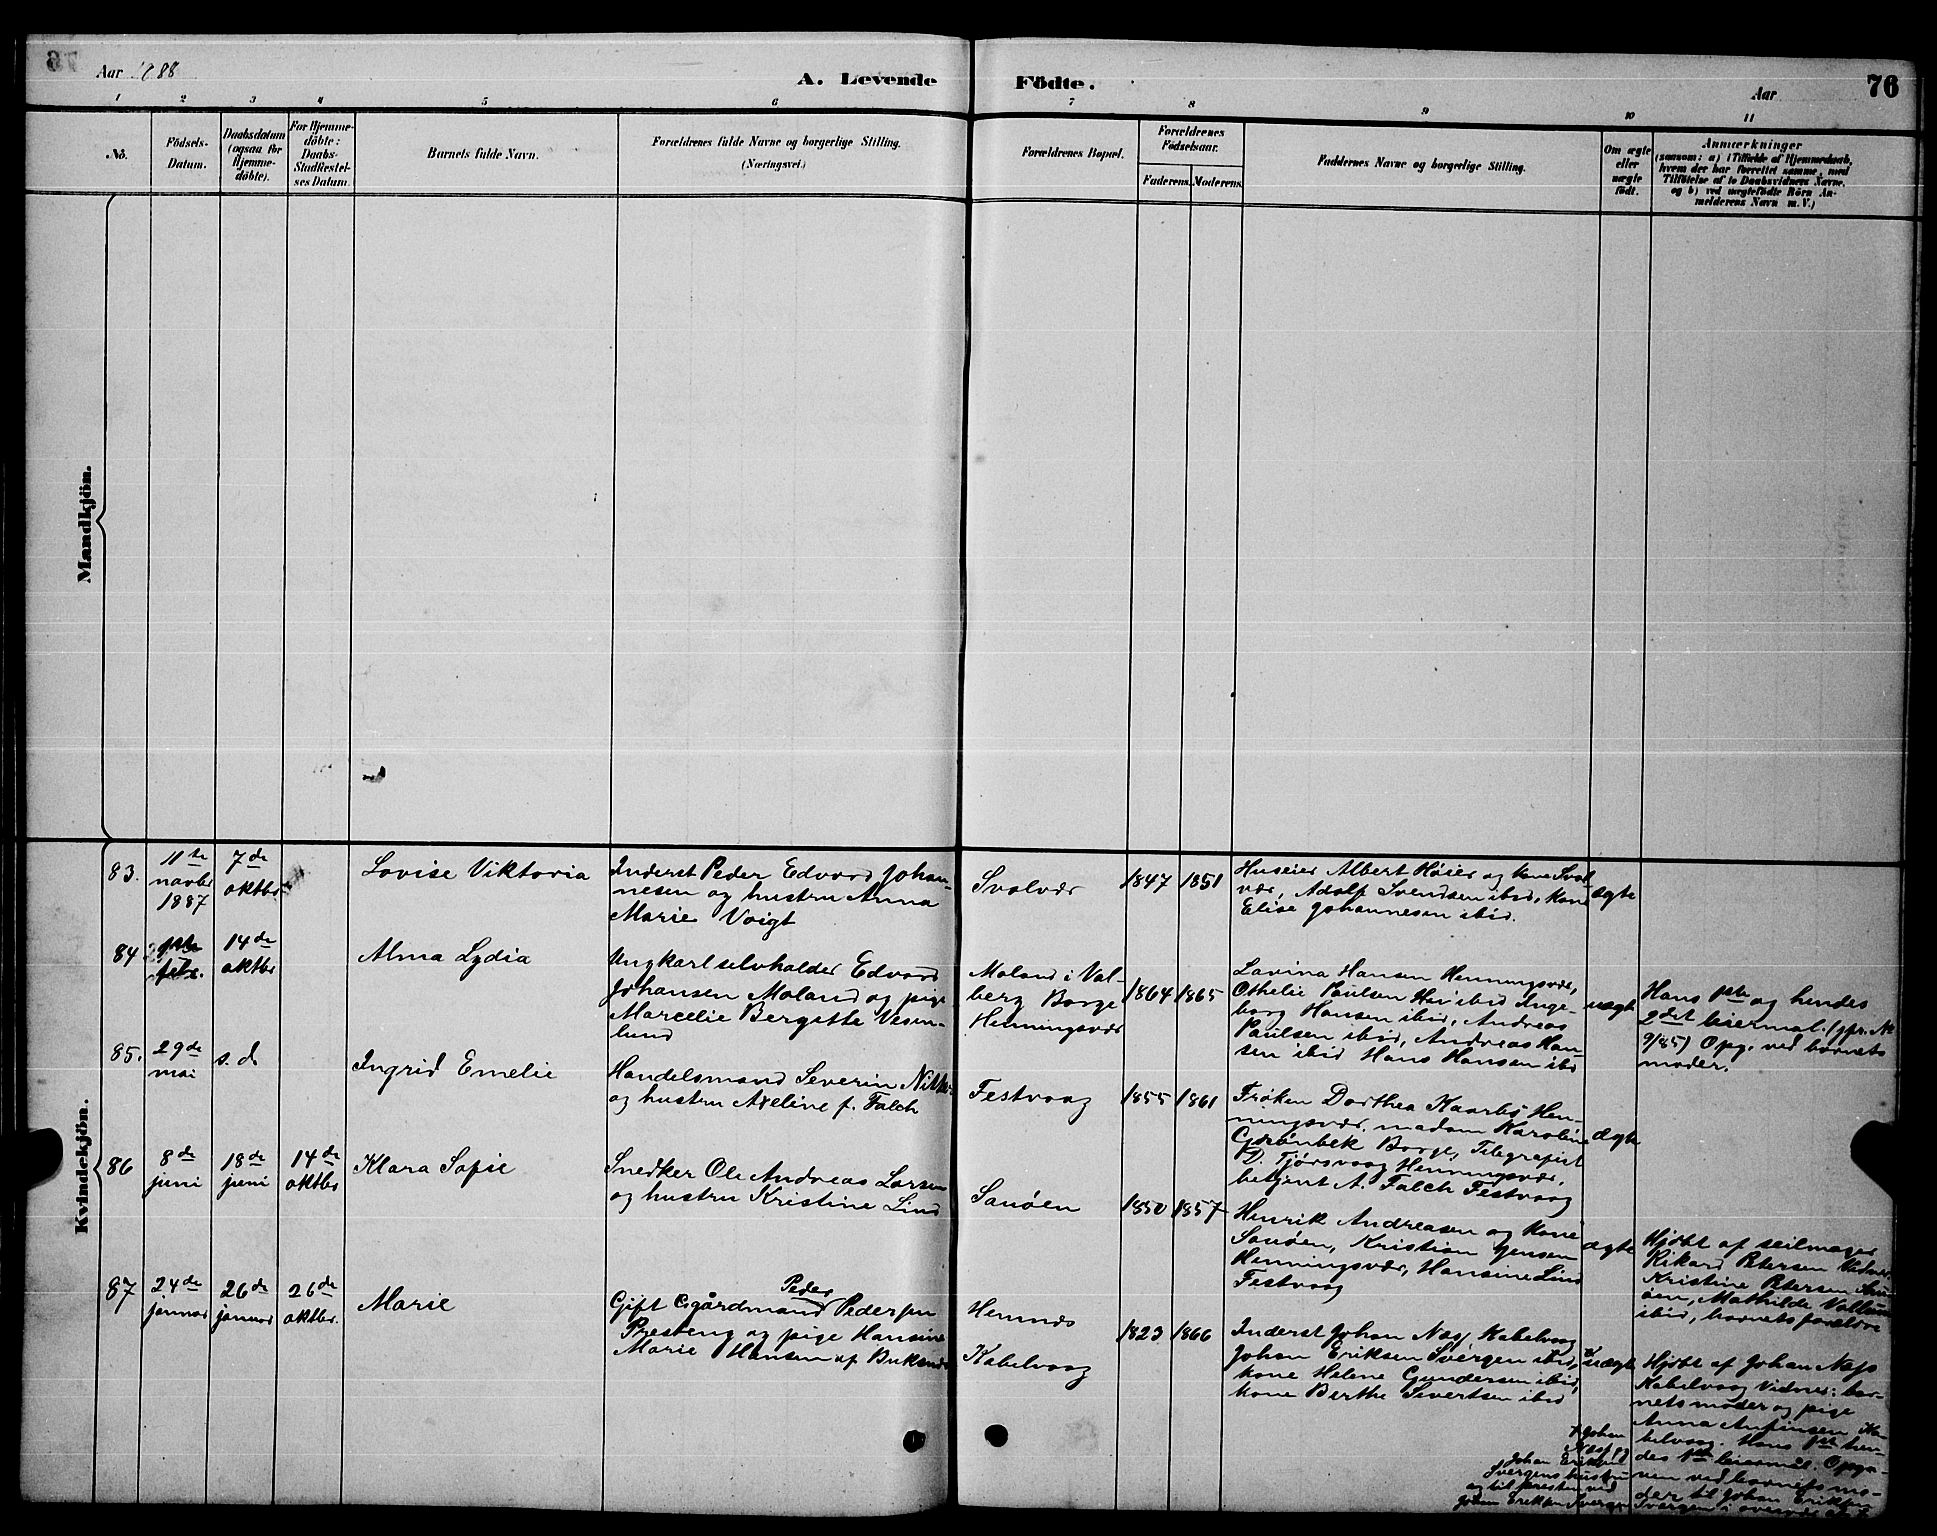 Aar 1888
A. Levende Födte.
Aar
76
1 2 3 4 5 6 7 8 9 10 11
No.
Födsels-
Datum.
Daabsdatum
(ogsaa for
Hjemme-
döbte).
For Hjemme-
döbte:
Daabs-
Stadfestel-
ses Datum.
Barnets fulde Navn.
Forældrenes fulde Navne og borgerlige Stilling.
(Næringsvei.)
Forældrenes Bopæl.
Forældrenes
Födselsaar.
Faderens. Moderens.
Faddernes Navne og borgerlige Stilling.
Om ægte
eller
uægte
födt.
Anmærkninger
(saasom: a) i Tilfælde af Hjemmedaab,
hvem der har forrettet samme, med
Tilföielse af to Daabsvidners Navne,
og b) ved uægtefödte Börn An-
melderens Navn m. V.)
Mandkjön.
Kvindekjön.
83.
11te
novbr
1887
7de
oktbr
Lovise Viktoria
Inderst Peder Edvard Johan-
nesen og hustru Anna
Marie Voigt
Svolvær
1847 1851
Huseier Albert Høier og kone Svol-
vær, Adolf Svendsen ibid, kone
Elise Johannesen ibid.
ægte
84
14de
oktbr
Alma Lydia
Ungkarl selvholder Edvard
Johansen Moland og pige
Marcelie Bergitte Vesin-
lund
Moland i Val-
berg Borge
Henningsvær
1864 1865
Lavina Hansen Henningsvær,
Othelie Paulsen ibid Inge-
borg Hansen ibid, Andreas
Paulsen ibid, Andreas Han-
sen ibid Hans Hansen ibid
uægte
Hans 1ste og hendes
2det leiermal. (jfr. No
9/85) Opg. ved barnets
moder.
85.
29de
mai
s. d
Ingrid Emelie
Handelsmand Severin
og hustru Axeline f. Falch
Festvaag
1855 1861
Frøken Dorthea Kaarbø Hen-
ningsvær, madam Karoline
Grønbek Borge, Telegrafist
D. Tjørsvaag Henningsvær,
betjent A. Falch Festvaag
ægte
86
8de
juni
18de
juni
14de
oktbr
Klara Sofie
Snedker Ole Andreas Larsen
og hustru Kristine Lind
Sauøen
1850 1857
Henrik Andreasen og kone
Sauøen, Kristian Jensen
Henningsvær, Hansine Lind
Festvaag
ægte
Hjdbt af seilmager
Rikard Petersen Vidner:
Kristine Petersen Sau-
øen, Mathilde
ibid, barnets forældre
87
24de
januar
26de
januar
26de
oktbr.
Marie
Peder
Gift gårdmand Pedersen
Presteng og pige Hansine
Marie Hansen af Buksnes
Hemnes
Kabelvaag
1823 1866
Inderst Johan Næss Kabelvaag
Johan Eriksen Svergen ibid,
kone Helene Gundersen ibid,
kone Berthe Sivertsen ibid
uægte
Hjdbt af Johan Næss
Kabelvaag Vidner: bar-
nets moder og pige
Anna Anfinsen Ka-
belvaag. Hans 1ste hen-
des 1ste leiermål. Opga-
ven ved barnets mo-
der til Johan Eriksen
Johan
Næss og
Johan Eriksen
Svergens hustru
og til presten ved
Johan Eriksen Svergen